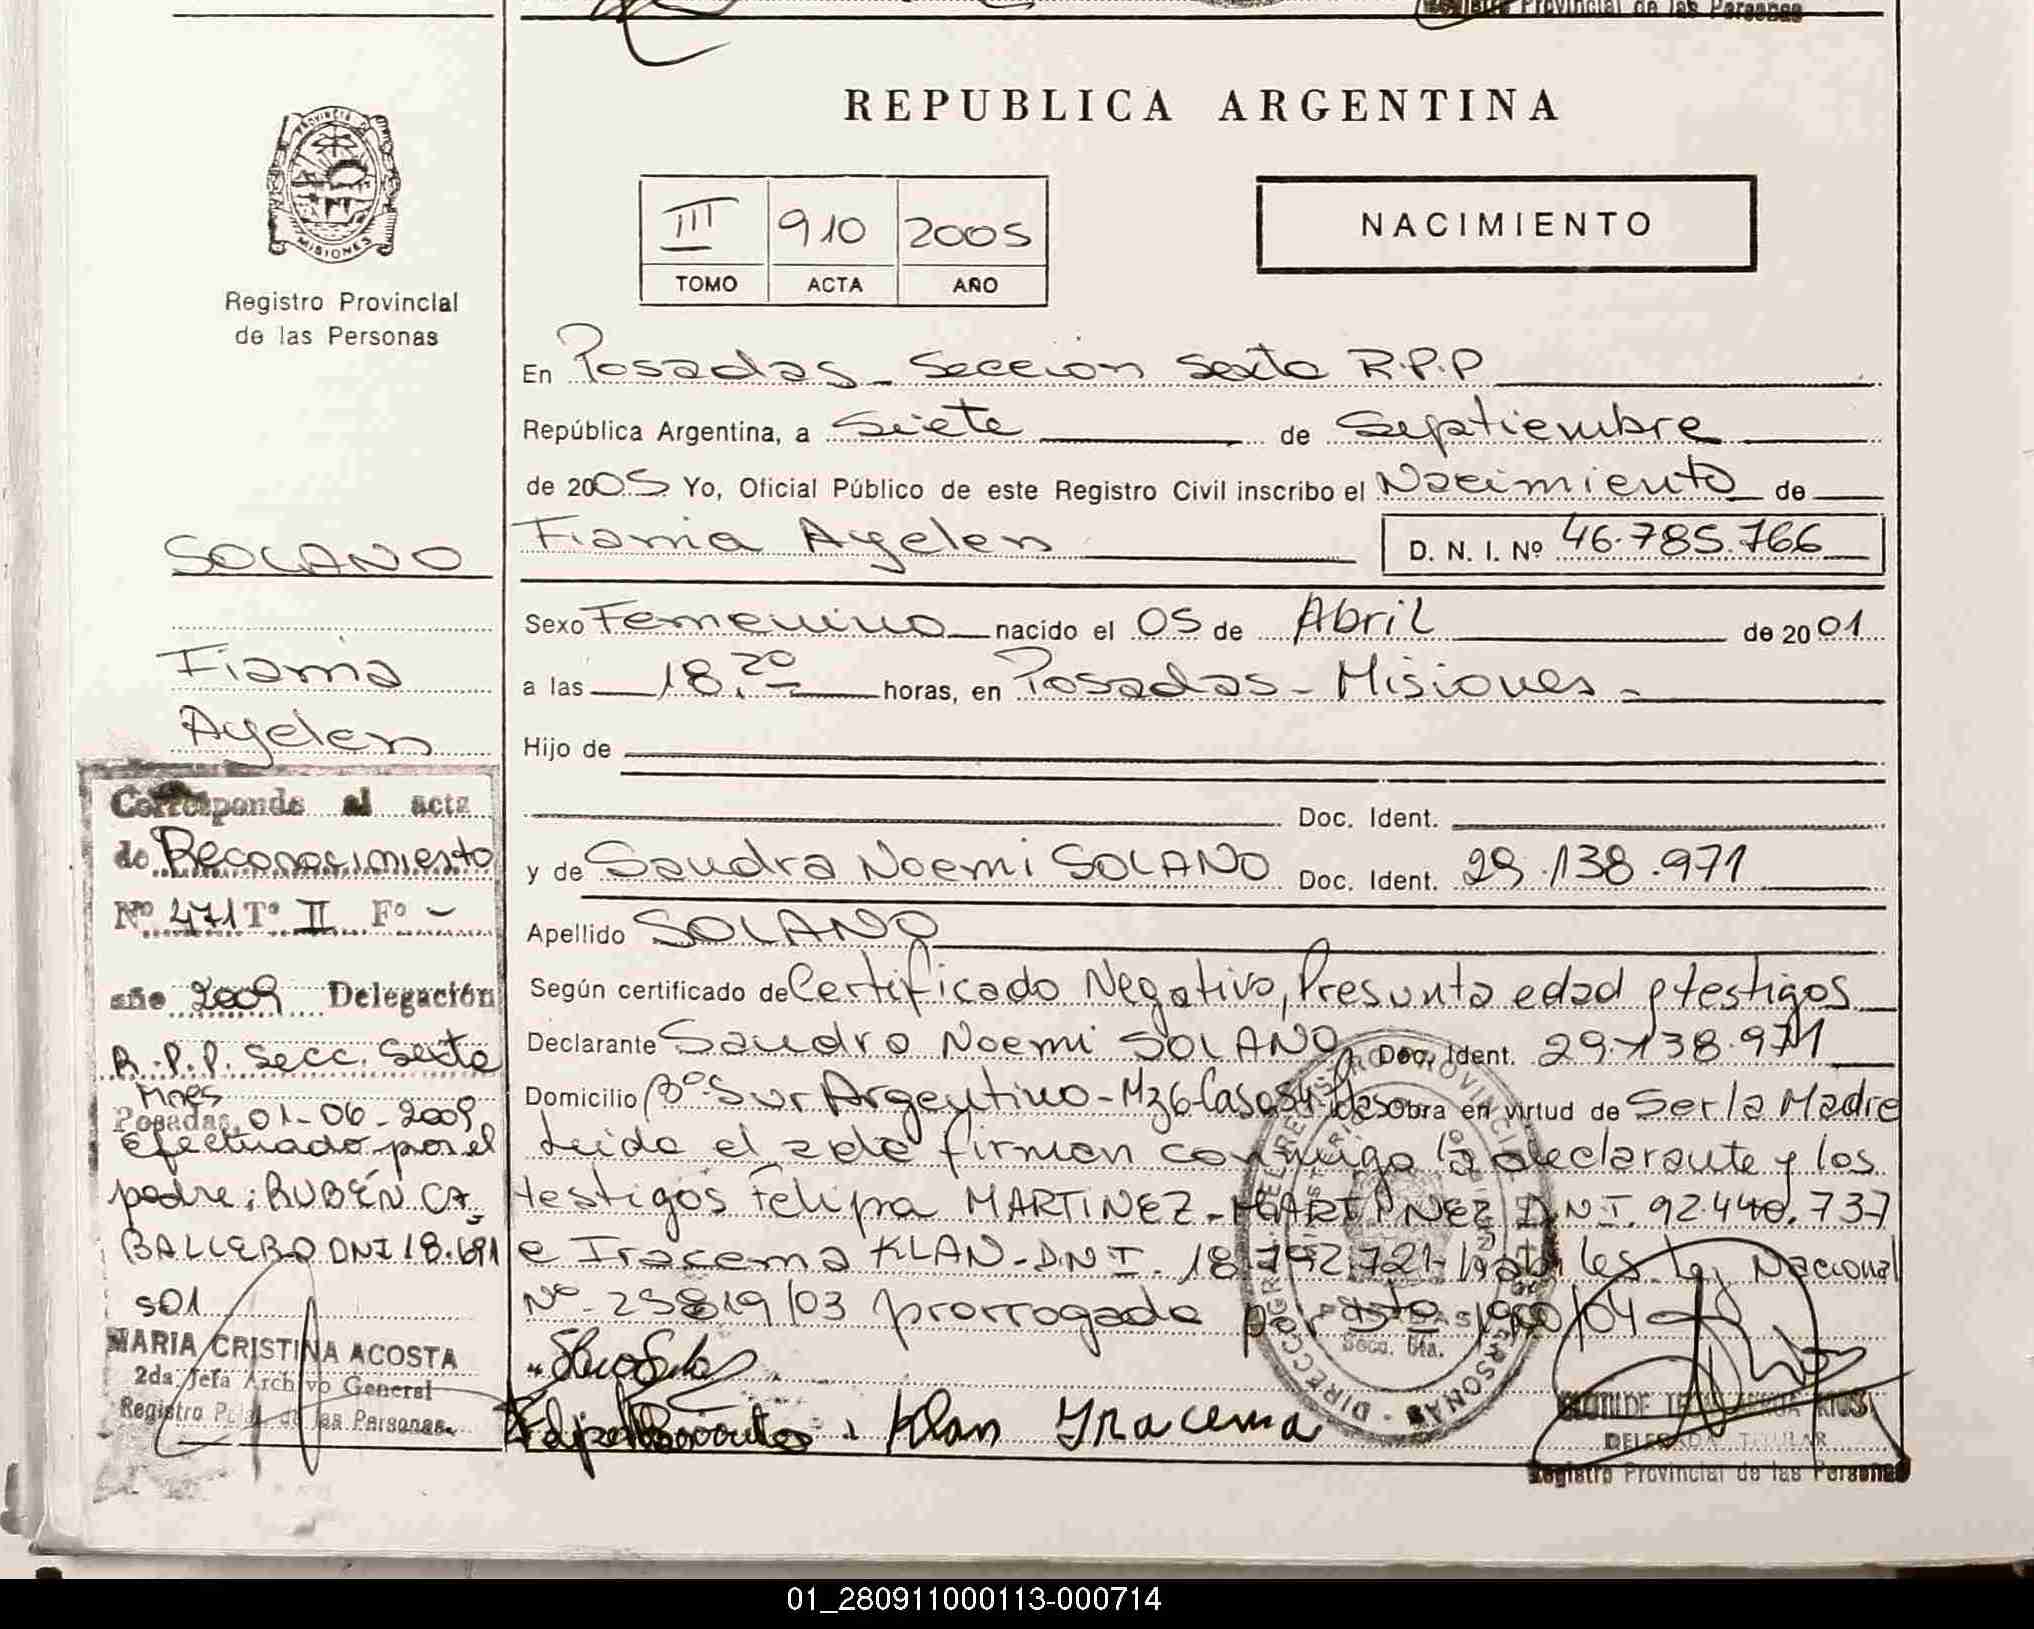 Registro Provincial de las Personas
REPUBLICA ARGENTINA
PROVINCIA DE
MISIONES
Registro Provincial
de las Personas
III 910 2005
TOMO ACTA AÑO
NACIMIENTO
En Posadas - Seccion Sexta R.P.P
República Argentina, a Siete de Septiembre
de 2005 Yo, Oficial Público de este Registro Civil inscribo el Nacimiento de
Fiama Ayelen D. N. I. Nº 46.785.766
Sexo Femenino nacido el 05 de Abril de 2001
a las 18.20 horas, en Posadas - Misiones -
Hijo de
Doc. Ident.
y de Sandra Noemi SOLANO Doc. Ident. 29.138.971
Apellido SOLANO
Según certificado de Certificado Negativo, Presunta edad y testigos
Declarante Sandra Noemi SOLANO Doc. Ident. 29.138.971
Domicilio Bº Sur Argentino - Mz 6 Casa 54 Pdas Obra en virtud de Ser la Madre
Leida el acta firman conmigo la declarante y los
testigos Felipa MARTINEZ - MARTINEZ D.N.I. 92.440.737
e Iracema KLAN - DNI. 18.792.721 - habiles Ley Nacional
Nº - 25819/03 prorrogada por Dto 1900/04
Klan Yracema
DELEGADA TITULAR
Registro Provincial de las Personas
SOLANO
Fiama
Ayelen
Corresponde al acta
de Reconocimiento
Nº 471 Tº II Fº -
año 2009 Delegación
R.P.P. Secc. Sexta
Mnes
Posadas, 01-06-2009
efectuado por el
padre: RUBÉN CA-
BALLERO DNI 18.691
501
MARIA CRISTINA ACOSTA
2da Jefa Archivo General
Registro Pcial. de las Personas.
01_280911000113-000714